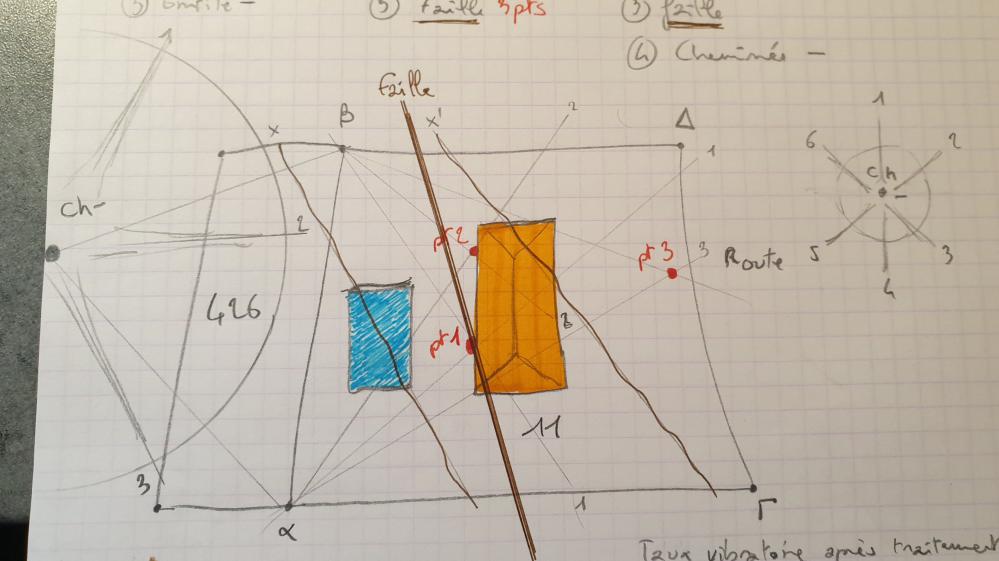 ③ faille
② faille 3pts
④ Cheminée -
faille
x
β
x'
2
Δ
1
1
1
6
2
ch
-
5
3
4
ch-
2
pt 2
pt 3
3
Route
426
pt 1
11
3
1
α
Γ
Taux vibratoire après traitement